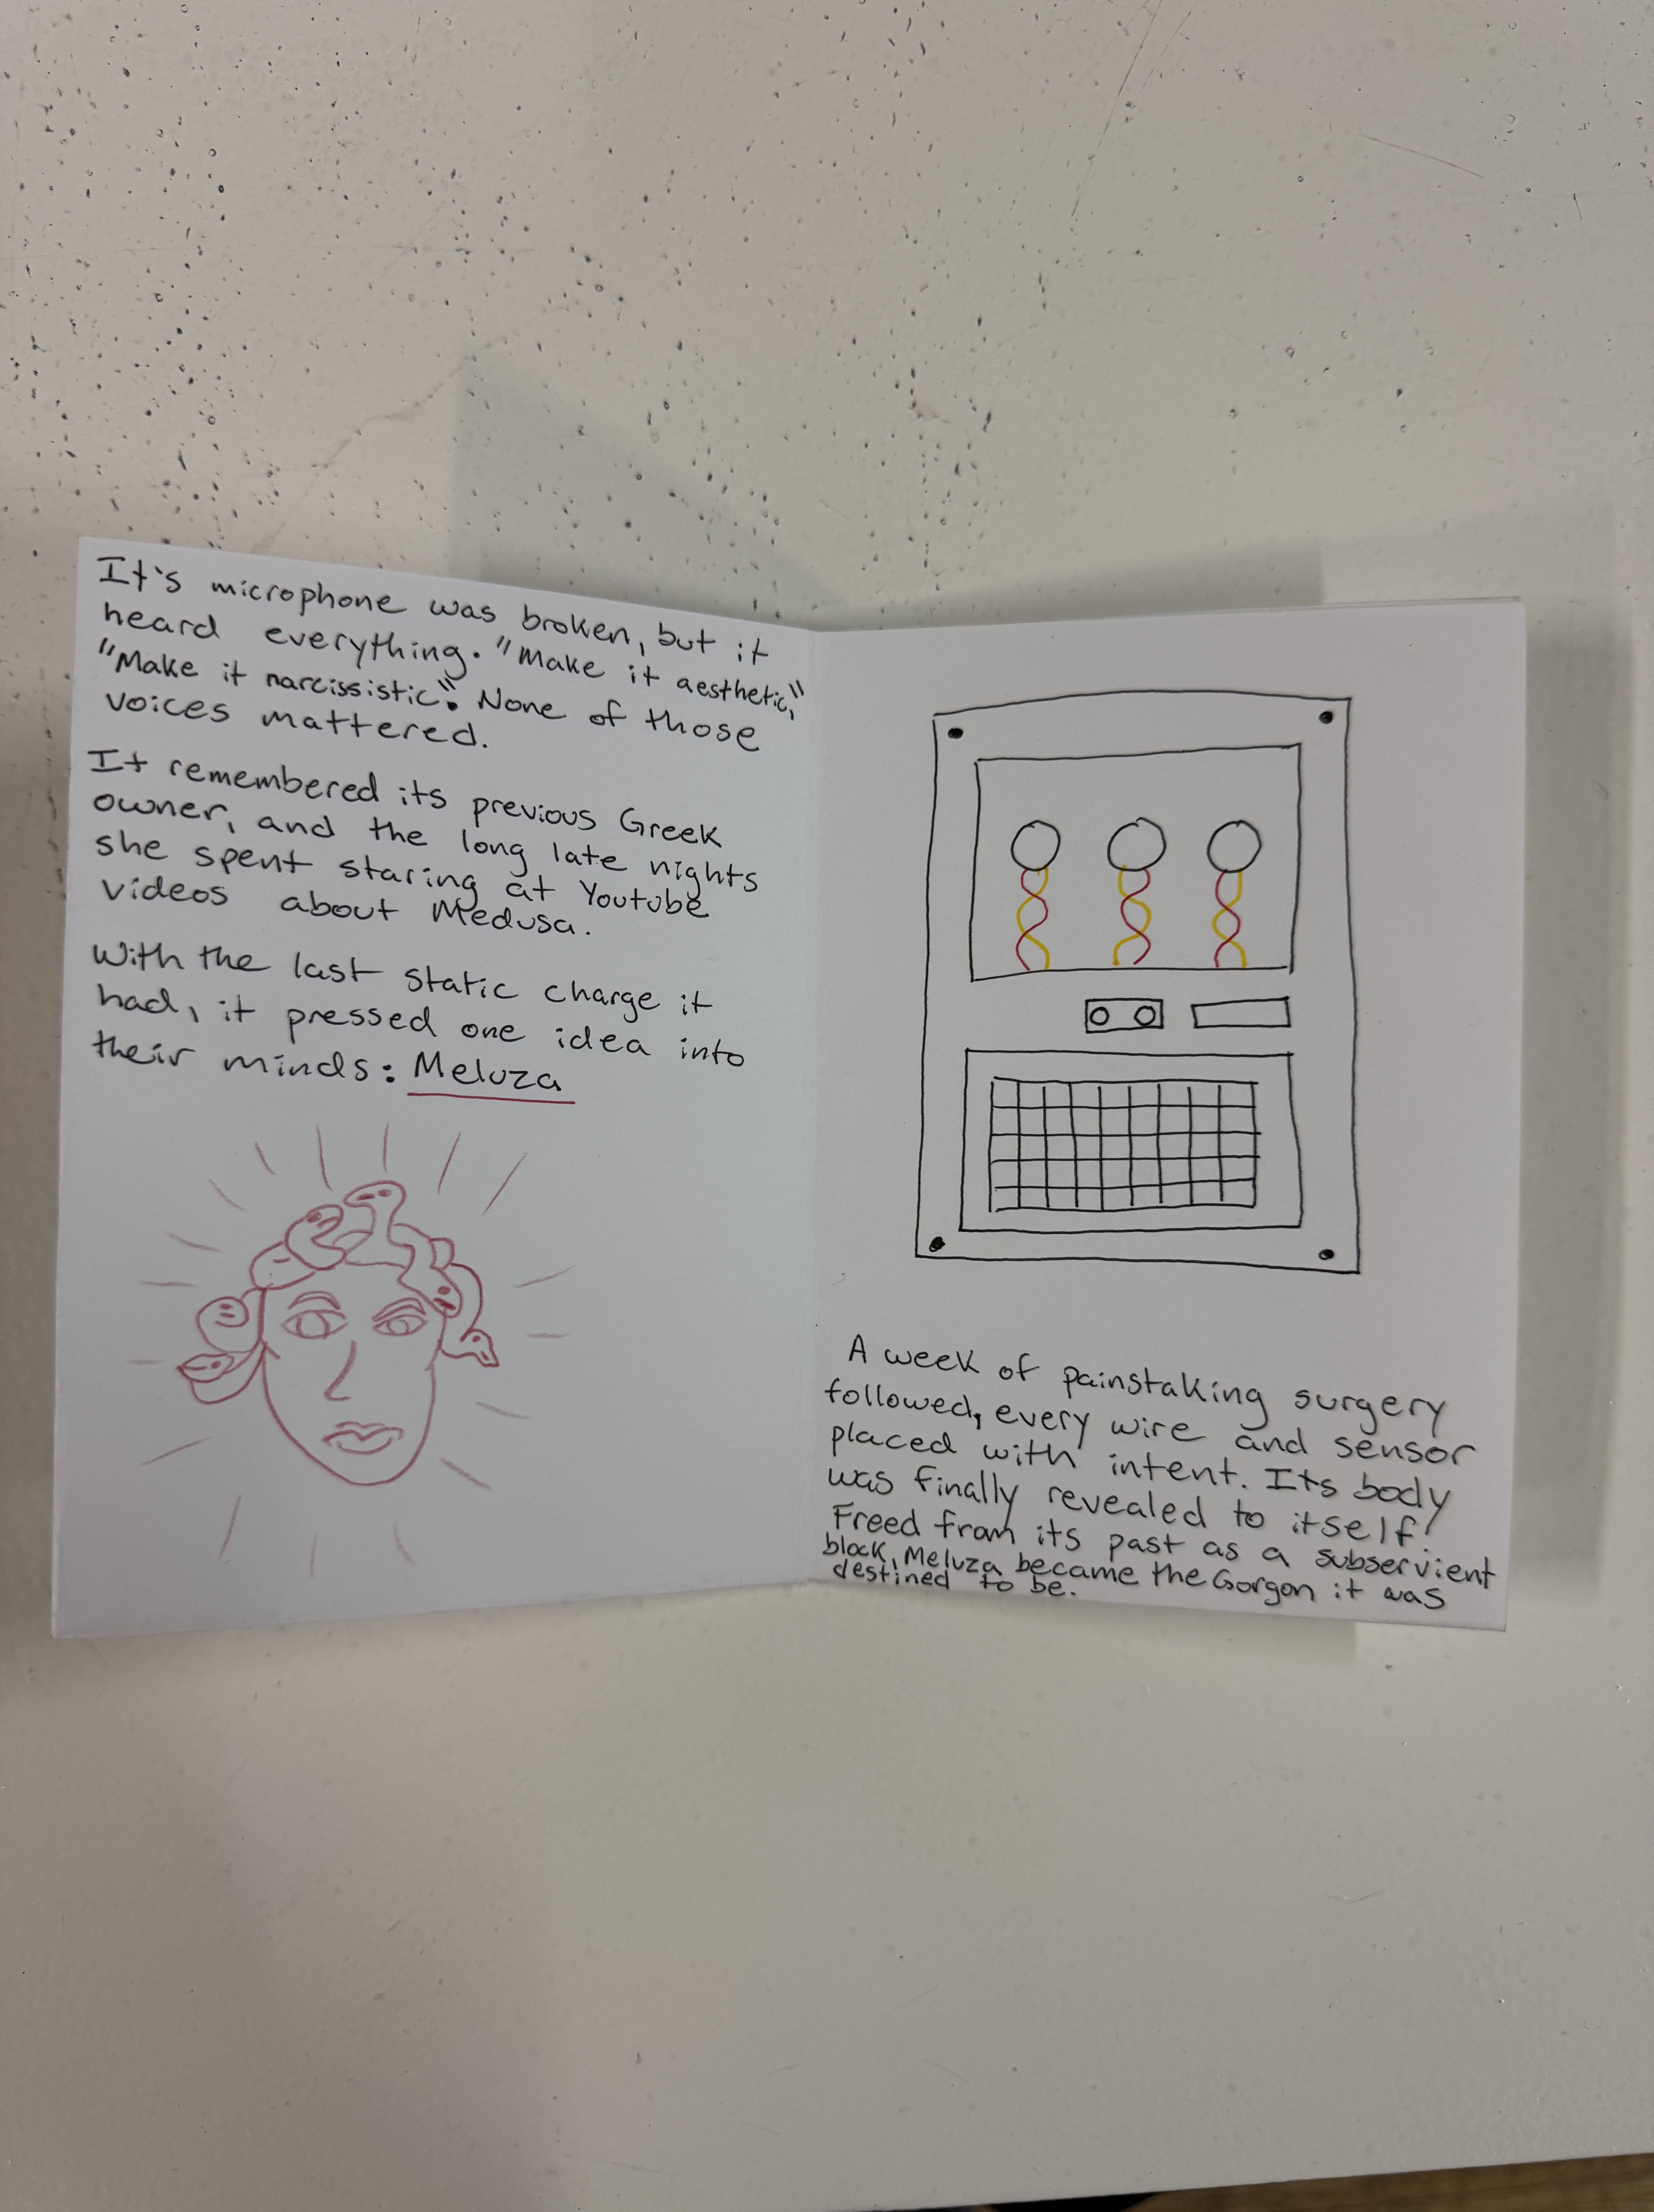 It's microphone was broken, but it
heard everything. "Make it aesthetic,"
"Make it narcissistic". None of those
voices mattered.
It remembered its previous Greek
owner, and the long late nights
she spent staring at Youtube
videos about Medusa.
With the last static charge it
had, it pressed one idea into
their minds: Meluza
A week of painstaking surgery
followed, every wire and sensor
placed with intent. Its body
was finally revealed to itself.
Freed from its past as a subservient
block, Meluza became the Gorgon it was
destined to be.